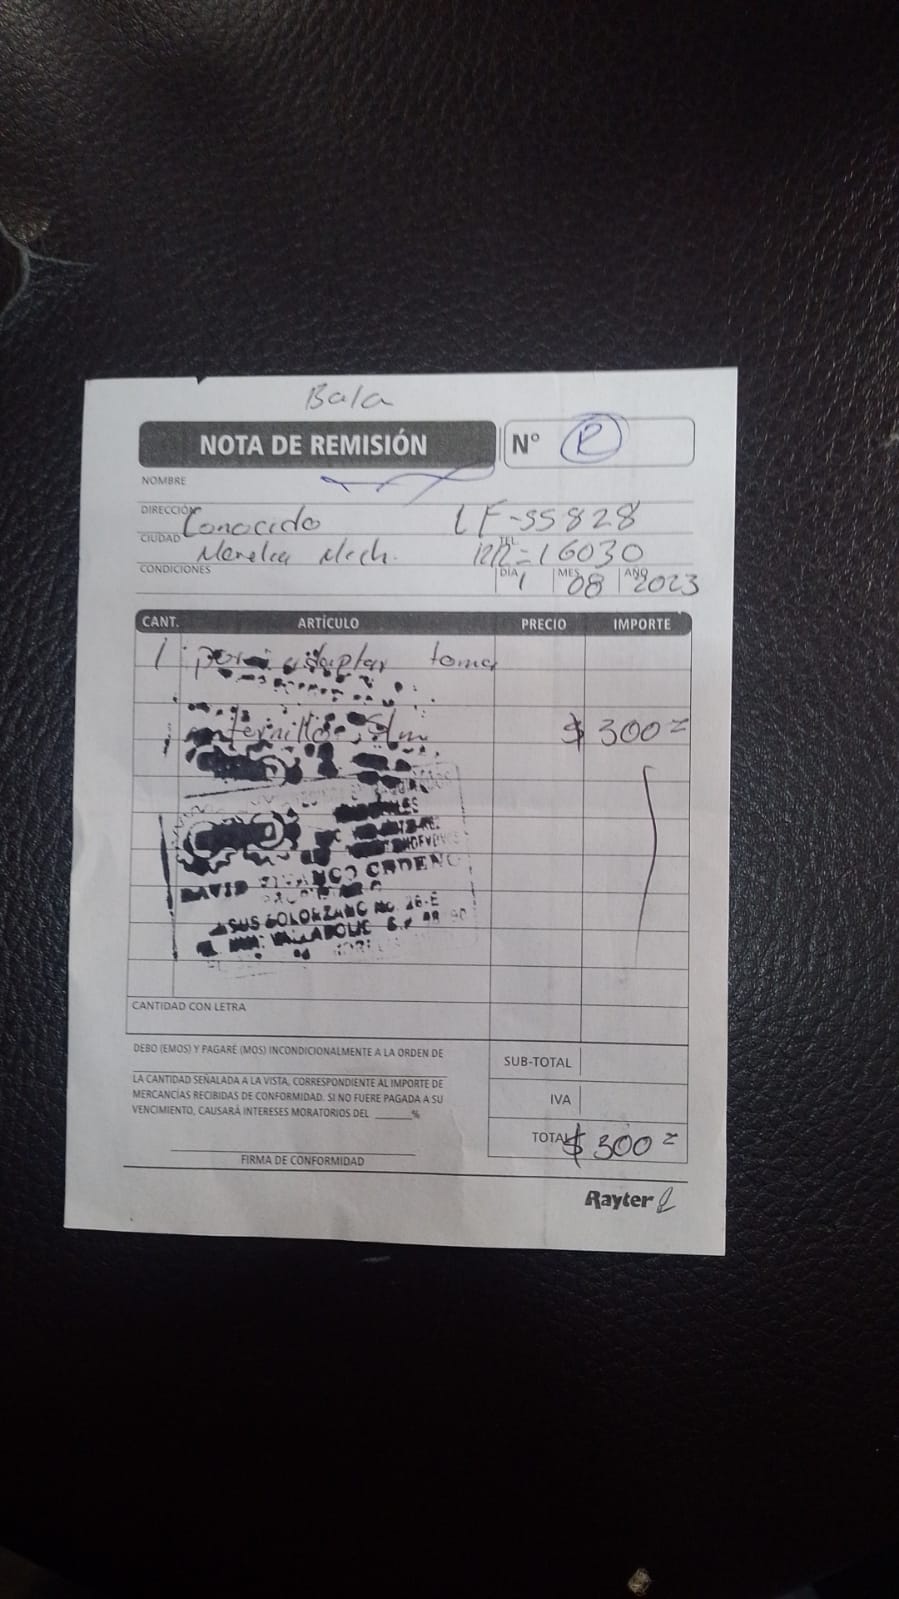 Bala
NOTA DE REMISIÓN N° R
NOMBRE
DIRECCIÓN Conocido LF-55828
CIUDAD Morelia Mich. TEL. 1212=16030
CONDICIONES DIA 1 MES 08 AÑO 2023
CANT. ARTÍCULO PRECIO IMPORTE
1 adaptar toma
$ 300
DAVID CO CADENO
SUS SOLORZANO No. 26-E
VALLADOLID
CANTIDAD CON LETRA
DEBO (EMOS) Y PAGARÉ (MOS) INCONDICIONALMENTE A LA ORDEN DE
LA CANTIDAD SEÑALADA A LA VISTA, CORRESPONDIENTE AL IMPORTE DE
MERCANCÍAS RECIBIDAS DE CONFORMIDAD. SI NO FUERE PAGADA A SU
VENCIMIENTO, CAUSARÁ INTERESES MORATORIOS DEL ______%
FIRMA DE CONFORMIDAD
SUB-TOTAL
IVA
TOTAL $ 300
Rayter